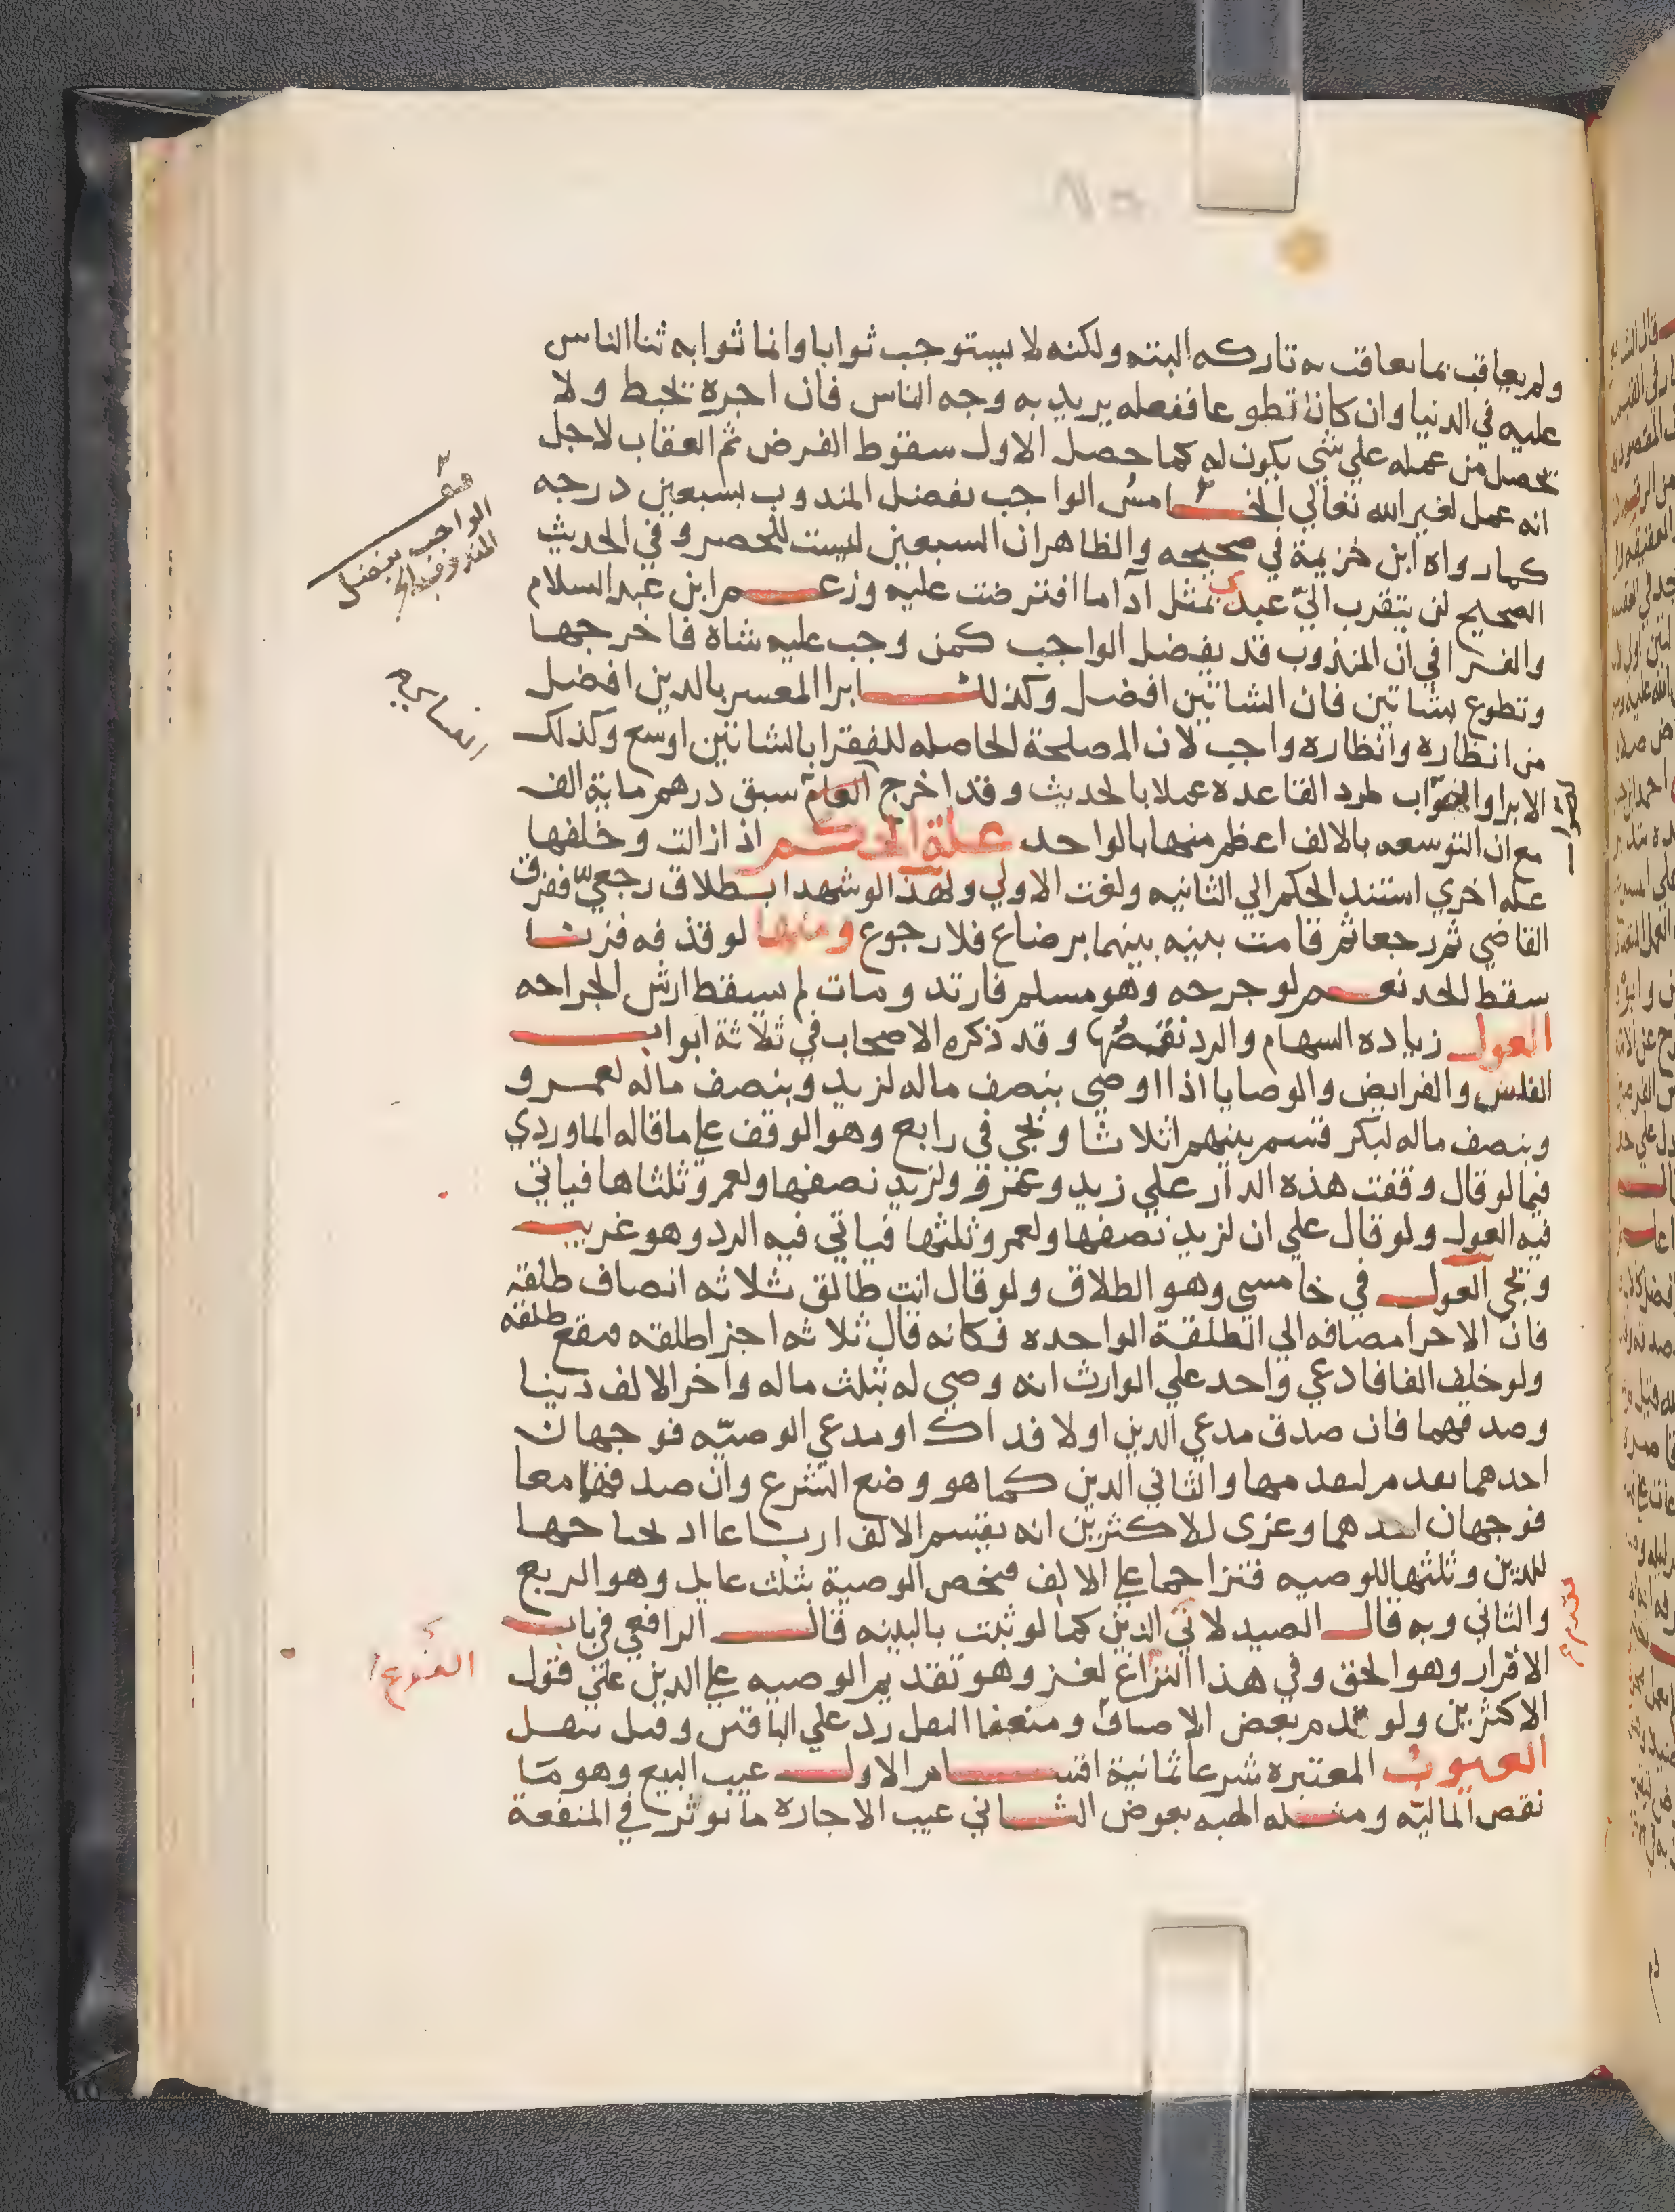 ولم يعاقب بما يعاقب به تاركه البته ولكنه لا يستوجب ثوابا وانما ثوابه ثنا الناس
عليه في الدنيا وان كان تطوعا ففعله يريد به وجه الناس فان اجره تحبط ولا
تحصل من عمله علي شي يكون له كما حصل الاول سقوط الفرض ثم العقاب لاجل
انه عمل لغير الله تعالي الخامس الواجب يفضل المندوب بسبعين درجه
كما رواه ابن خزيمة في صحيحه والظاهر ان السبعين ليست للحصر وفي الحديث
الصحيح لن يتقرب الي عبدي بمثل اداما افترضت عليه وزعم ابن عبد السلام
والقرافي ان المندوب قد يفضل الواجب كمن وجب عليه شاة فاخرجها
وتطوع بشاتين فان الشاتين افضل وكذلك ابرا المعسر بالدين افضل
من انظاره وانظاره واجب لان المصلحة الحاصله للفقرا بالشاتين اوسع وكذلك
الابرا والصواب طرد القاعده عملا بالحديث وقد اخرج سبق درهم ماية الف
مع ان التوسعه بالالف اعظم منها بالواحد علة الحكم اذا زالت وخلفها
عله اخري استند الحكم الي الثانيه ولغت الاولي ولهذا لو شهدا بطلاق رجعي ففرق
القاضي ثم رجعا ثم قامت بينه بينهما برضاع فلا رجوع ومنها لو قذفه فزنا
سقط الحد نعم لو جرحه وهو مسلم فارتد ومات لم سيقط ارش الجراحه
العول زياده السهام والرد نقصها وقد ذكره الاصحاب في ثلاثة ابواب
الفلس والفرايض والوصايا اذا اوصي بنصف ماله لزيد وبنصف ماله لعمرو
وبنصف ماله لبكر قسم بينهم اثلاثا ويجي في رابع وهو الوقف علي ما قاله الماوردي
فيما لو قال وقفت هذه الدار علي زيد وعمرو ولزيد نصفها ولعمرو ثلثاها فياتي
فيه العول ولو قال علي ان لزيد نصفها ولعمرو ثلثها فياتي فيه الرد وهو غريب
ويجي العول في خامس وهو الطلاق ولو قال انت طالق ثلاثه انصاف طلقه
فان الاجزا مضافه الي الطلقة الواحده فكانه قال ثلاثه اجزا طلقه فيقع طلقه
ولو خلف الفا فادعي واحد علي الوارث انه وصي له بثلث ماله واخر الالف دينا
وصدقهما فان صدق مدعي الدين اولا فذاك او مدعي الوصيه فوجهان
احدهما والثاني الدين كما هو وضع الشرع وان صدقهما معا
فوجهان احدهما وعزي للاكثرين انه يقسم الالف ارباعا
للدين وثلثها للوصيه فتزاحما علي الالف فيخص الوصية بثلث عايل وهو الربع
والثاني وبه قال الصيدلاني الدين كما لو ثبت بالبينه قال الرافعي في باب
الاقرار وهو الحق وفي هذا النزاع لغز وهو تقديم الوصيه علي الدين علي قول
الاكثرين ولو قدم بعض الاصناف ومنعنا النقل رد علي الباقين وقيل ينقل
العيوب المعتبره شرعا ثمانية اقسام الاول عيب البيع وهو ما
نقص الماليه ومثله الهبه بعوض الثاني عيب الاجارة ما يوثر في المنفعة
الواجب يفضل
المندوب الخ